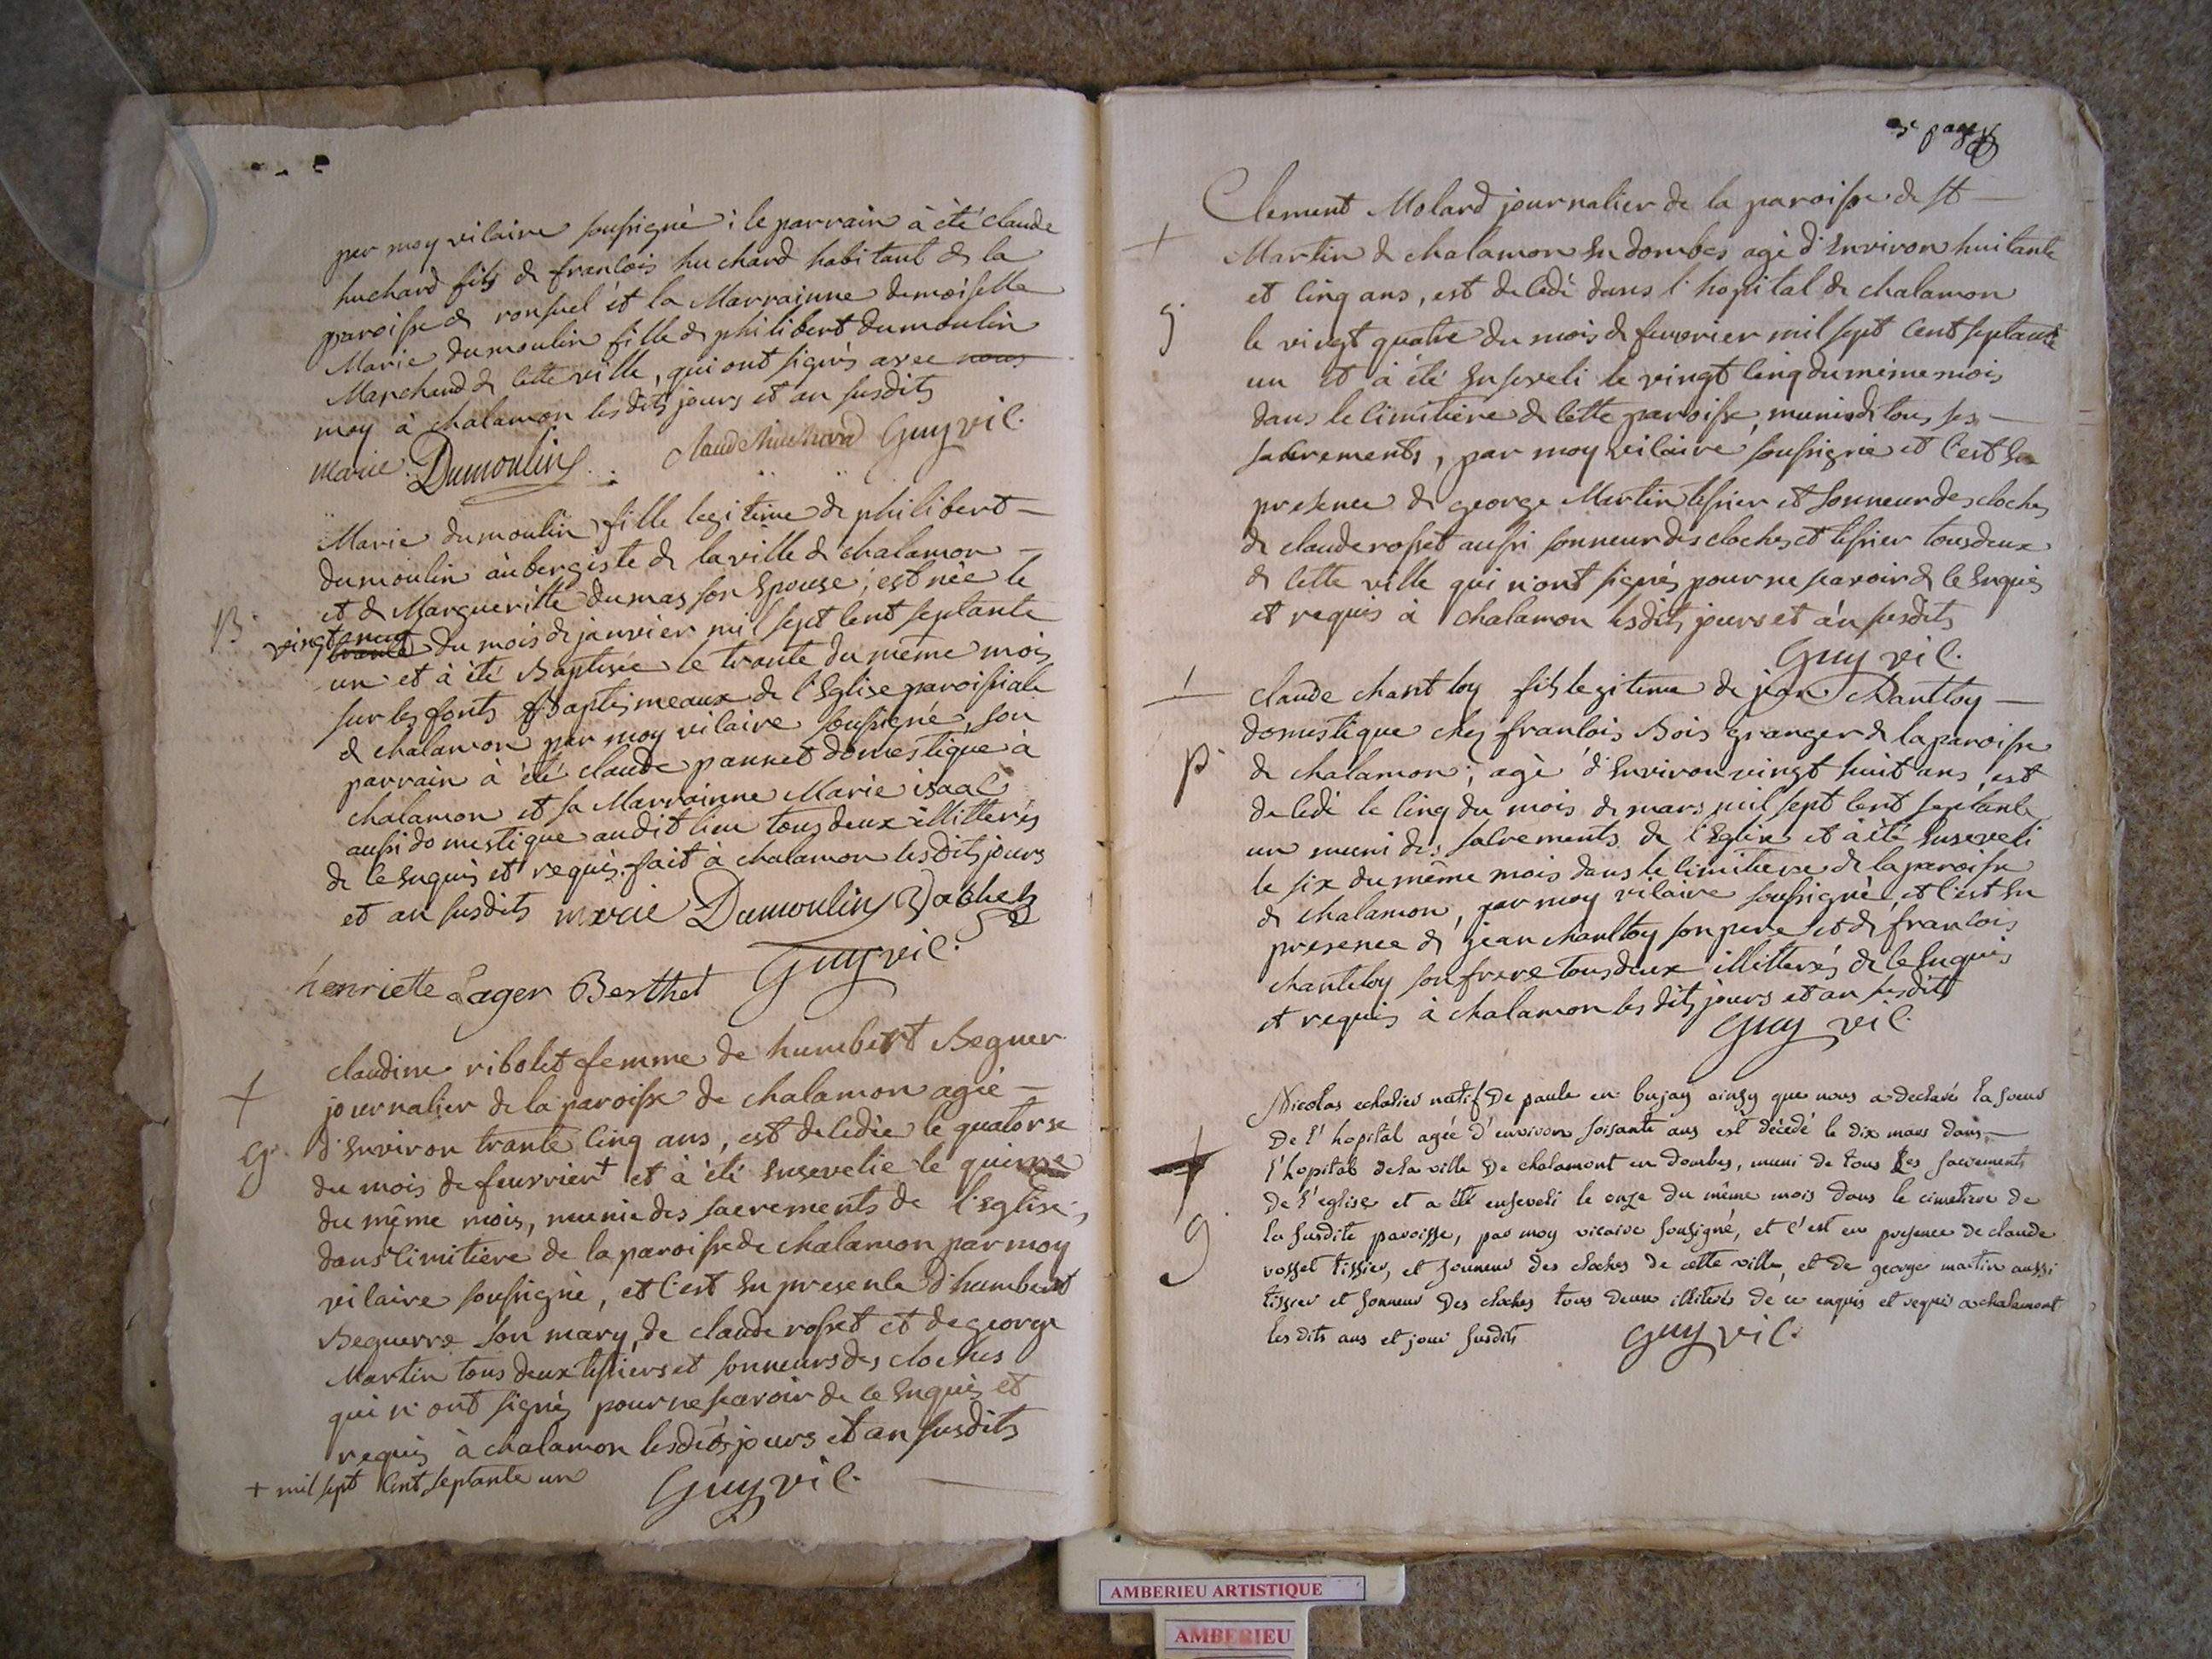 par moy vicaire soussigné ; le parrain à été claude
huchard fils de francois huchard habitant de la
paroisse de ronsuel ét la Marrainne demoiselle
Marie dumoulin fille de philibert dumoulin
Marchend de cette ville, qui ont signés avec nous
moy à chalamon lesdits jours et an susdits
marie Dumoulin claude huchard Guy vic.
Marie dumoulin fille legitime de philibert
dumoulin aubergiste de la ville de chalamon
et de Margueritte dumas son Epouse, est née le
B.
vingt neuf
trante du mois de janvier mil sept cent septante
un et à été Baptisée le trante du même mois
sur les fonts Baptismeaux de l'Eglise paroissiale
de chalamon par moy vicaire soussigné, son
parrain à été claude pannet domestique à
chalamon et sa Marrainne Marie isaac
aussi domestique audit lieu tous deux illitterés
de ce Enquis et requis. fait à chalamon lesdits jours
et an susdits marie Dumoulin
henriette Lager Berthet Guy vic.
claudine ribolet femme de humbert Beguer
+ journalier de la paroisse de chalamon agée
g. d'Environ trante cinq ans, est decedée le quatorse
du mois de feuvrier + et à été Ensevelie le quinse
du même mois, munie des sacrements de l'Eglise,
dans cimitiere de la paroisse de chalamon par moy
vicaire soussigné, et c'est En presence d'humbert
Beguerre son mary, de claude rosset et de george
Martin tous deux tissiers et sonneurs des cloches
qui n'ont signés pour ne scavoir de ce Enquis et
requis à chalamon lesdits jours et an susdits
+ mil sept cent septante un Guy vic.
3e page
Clement Molard journalier de la paroisse de st
+ Martin de chalamon En dombes agé d'Environ huitante
et cinq ans, est decedé dans l'hopital de chalamon
g le vingt quatre du mois de feuvrier mil sept cent septante
un et à été Enseveli le vingt cinq du même mois
dans le cimitiere de cette paroisse, muni de tous ses
sacrements, par moy vicaire soussigné et c'est En
presence de george Martin tissier et sonneur des cloches
de claude rosset aussi sonneur des cloches et tissier tous deux
de cette ville qui n'ont signés pour ne scavoir de ce Enquis
et requis à chalamon lesdits jours et an susdits
Guy vic.
+ claude chantloy fils legitime de jean chantloy
domestique chez francois Bois granger de la paroisse
p. de chalamon, agé d'Environ vingt huit ans, est
decedé le cinq du mois de mars mil sept cent septante
un muni des sacrements de l'Eglise et à été Enseveli
le six du même mois dans le cimitiere de la paroisse
de chalamon, par moy vicaire soussigné, et c'est En
presence de jean chantloy son pere et de francois
chanteloy son frere tous deux illitterés de ce Enquis
et requis à chalamon lesdits jours et an susdits
Guy vic.
Nicolas echalier natif de paule en bujay ainsy que nous a declaré la soeur
de l'hopital agée d'environ soisante ans est décédé le dix mars dans
+ l'hopital de la ville de chalamont en dombes, muni de tous les sacrements
de l'eglise et a été enseveli le onze du même mois dans le cimetiere de
g la susdite paroisse, par moy vicaire sousigné, et c'est en presence de claude
rosset tissier, et sonneur des cloches de cette ville, et de george martin aussi
tissier et sonneur des cloches tous deux illiterés de ce enquis et requis a chalamont
les dits ans et jour susdits Guy vic.
AMBERIEU ARTISTIQUE
AMBERIEU